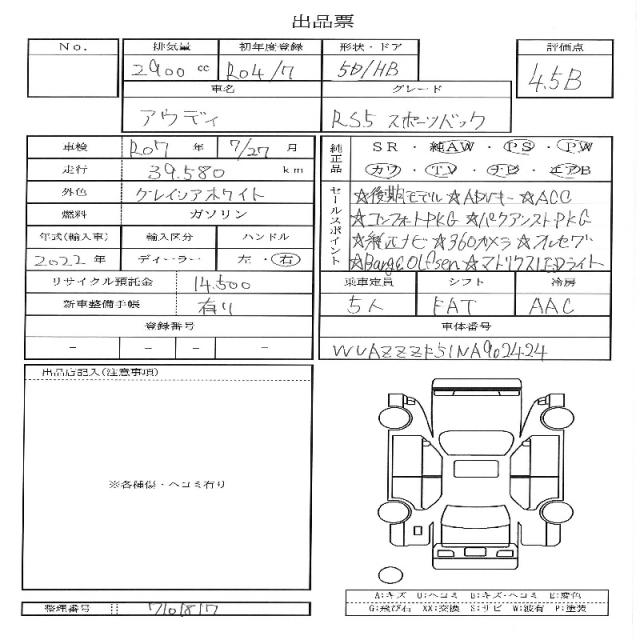 出品票
No. 排気量 初年度登録 形状・ドア 評価点
2900 cc R04/7 5D/HB 4.5B
車名 グレード
アウディ RS5 スポーツバック
車検 R07 年 7/27 月
走行 39.580 km
外色 グレイシアホワイト
燃料 ガソリン
年式(輸入車) 輸入区分 ハンドル
2022 年 ディーラー 左・右
リサイクル預託金 14.500
新車整備手帳 有り
登録番号
- - - -
純正品 SR・純AW・PS・PW
カワ・TV・ナビ・エアB
セールスポイント ☆後期モデル☆ADVキー☆ACC
☆コンフォートPKG☆パクアシストPKG
☆純正ナビ☆360カメラ☆オルセグ
☆Bang&Olfsen☆マトリクスLEDライト
乗車定員 シフト 冷房
5人 FAT AAC
車体番号
WUAZZZF51NA902424
出品店記入(注意事項)
※各種傷・ヘコミ有り
A:キズ U:ヘコミ B:キズ・ヘコミ E:変色
G:飛び石 XX:交換 S:サビ W:波有 P:塗装
整理番号 710817